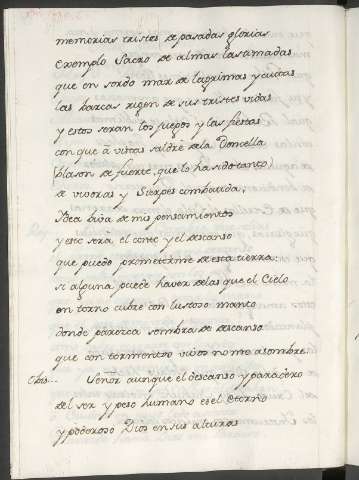 memorias tristes de pasadas glorias
exemplo Sacro de almas lastimadas
que en sordo mar de lagrimas y cuitas
las barcas rigen de sus tristes vidas
y estos seran los juegos y las fiestas
con que à vistas saldrè de la Doncella
(blason de fuerte, que lo ha sido tanto)
de vivoras y Sierpes combatida;
Idea viva de mis pensamientos
y este sera el conec y el descanso
que puedo prometerme de esta tierra:
si alguna puede haver de las que el Cielo
en torno cubre con lustoso manto
donde parezca sombra de descanso
que con tormentos vivos no me asombre.
Obis... Señor aunque el descanso y paradero
del ser y peso humano es el eterno
y poderoso Dios en sus alturas